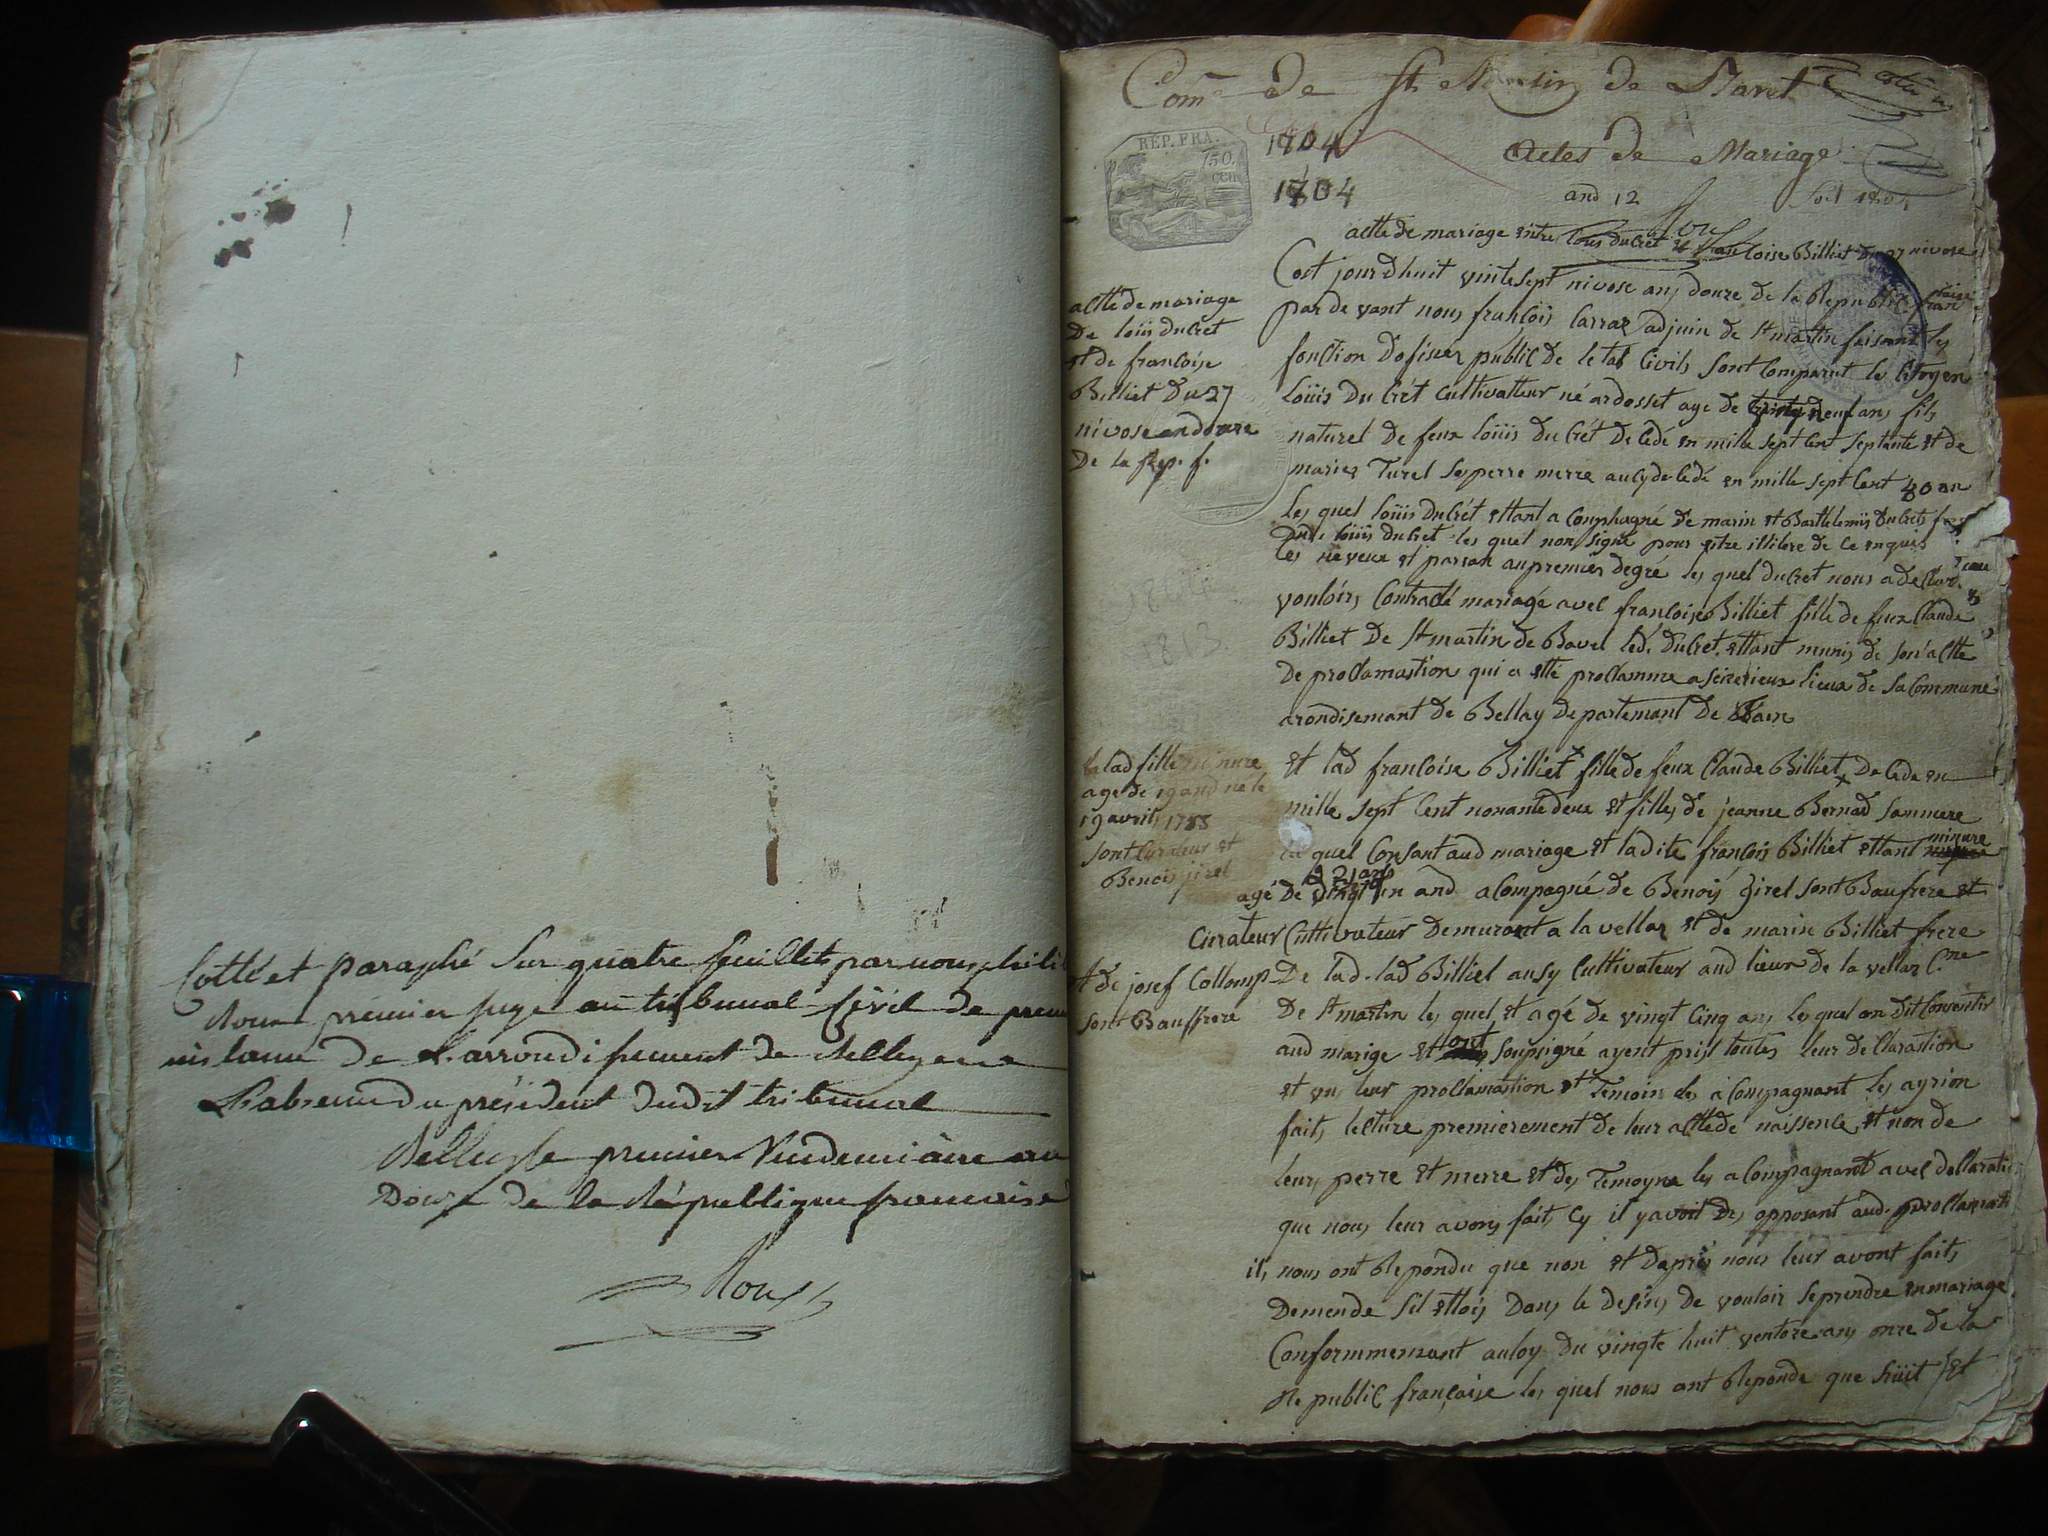 Cotté et paraphé sur quatre feuillets par nous
premier juge au tribunal Civil de prem
instance de L'arrondissement de Belley
L'absence du président dudit tribunal
Belley le premier Vendemiaire an
Douze de la République francaise
Roux
Com.e de St Martin de Bavel
REP. FRA.
750.
CEN
1704
Actes de Mariage
1704
and 12
acttê de mariage entre loüis ducret et francoise Billiet du 27 nivose
acttê de mariage
De loüis ducret
et de francoise
Billiet Du 27
nivose an douze
De la Rep. f.
Cest jourdhuit vintesept nivose ans douze de la Republic
par de vant nous francois Carraz adjuin de St martin faisant les
fonction dofisier public de le tat Civils sont Comparut le Citoyen
Loüis Du Crét Cultivatteur né ardosset age de neuf ans fils
naturel de feux loüis du Crét De Cedé en mille sept Cent septante et de
maries Turel ses perre merre aucy de Cedé en mille sept Cent 80 an
les quel loüis duCrét ettant a Comphagné de marin et Barthelemis duCrets
Dud. loüis duCret les quel non signé pour ettre illitere de Ce enquis
les neveux et parran au premier degré les quel duCret nous a deClaré
vouloirs Contracté mariage avec francoise Billiet fille de feux Claude
Billiet De St martin de Bavel led. DuCret ettant munis de son actte
De proClamastion qui a etté proClamme a Seizerieux lieux de sa Communé
arondisemant de Bellay departemant De Lain
la lad fille minure
age de 19 and né le
19 avrils 1785
sont Curateur et
Benois jirel
et lad francoise Billiet fille de feux Claude Billiet De Cede en
mille sept Cent nonante deux et filles de jeanne Bernad sammere
la quel Consant aud mariage et ladite francois Billiet ettant minure
agé De vingt un and aCompagné de Benois Girel sont Baufrere et
Curateur Cultivateur Demurant a la vellaz et de marin Billiet frere
et de josef Collomp De lad. lad Billiet ausy Cultivateur aud lieux de la vellaz C.ne
sont Bauffrere De St martin les quel et agé de vingt Cinq ans les quel on dit Consentir
aud marige et ont soupsigné ayent prist toutes leur deClarastion
et vus leur proClamastion et temoin les aCompagnant les ayrion
fait lecture premierement de leur acttê dé naissence et non de
leurs perre et merre et des Temoyns les aCompagnant avec deClaratio
que nous leur avons fait Cy il yavoit Des opposant aud. proClamati
ils nous ont Reponde que non et dapres nous leur avont fait
Demende sil ettois Dans le desins de vouloir se prendre en mariage
Conformmensant auloy Du vingte huit ventose ans onze de la
Re public française les quel nous ont Reponde que huit et